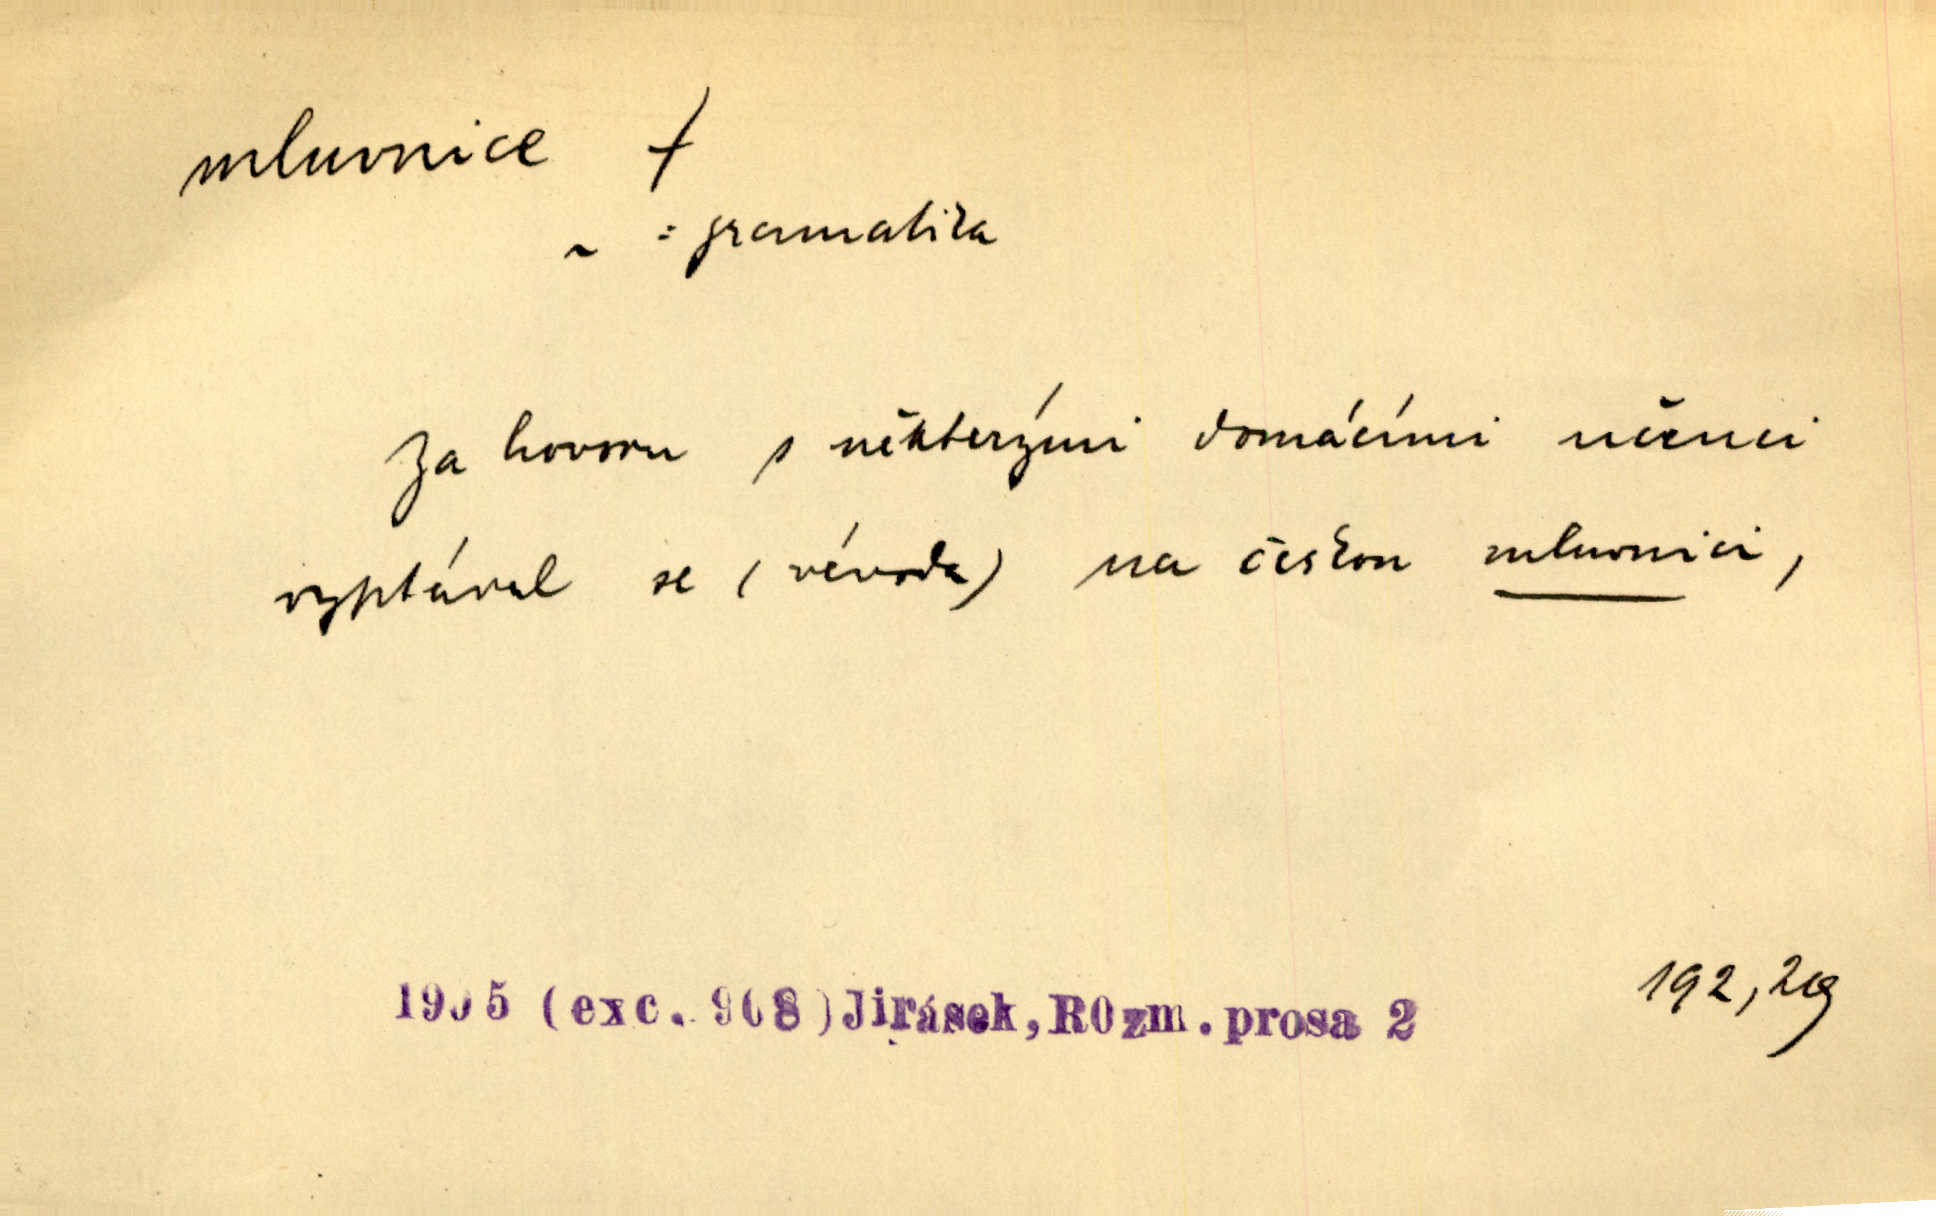 mluvnice f
~ = gramatika
Za hovoru s některými domácími učenci
vyptával se (vévoda) na českou mluvnici,
192, 29
1905 (exc. 908) Jirásek, ROzm. prosa 2